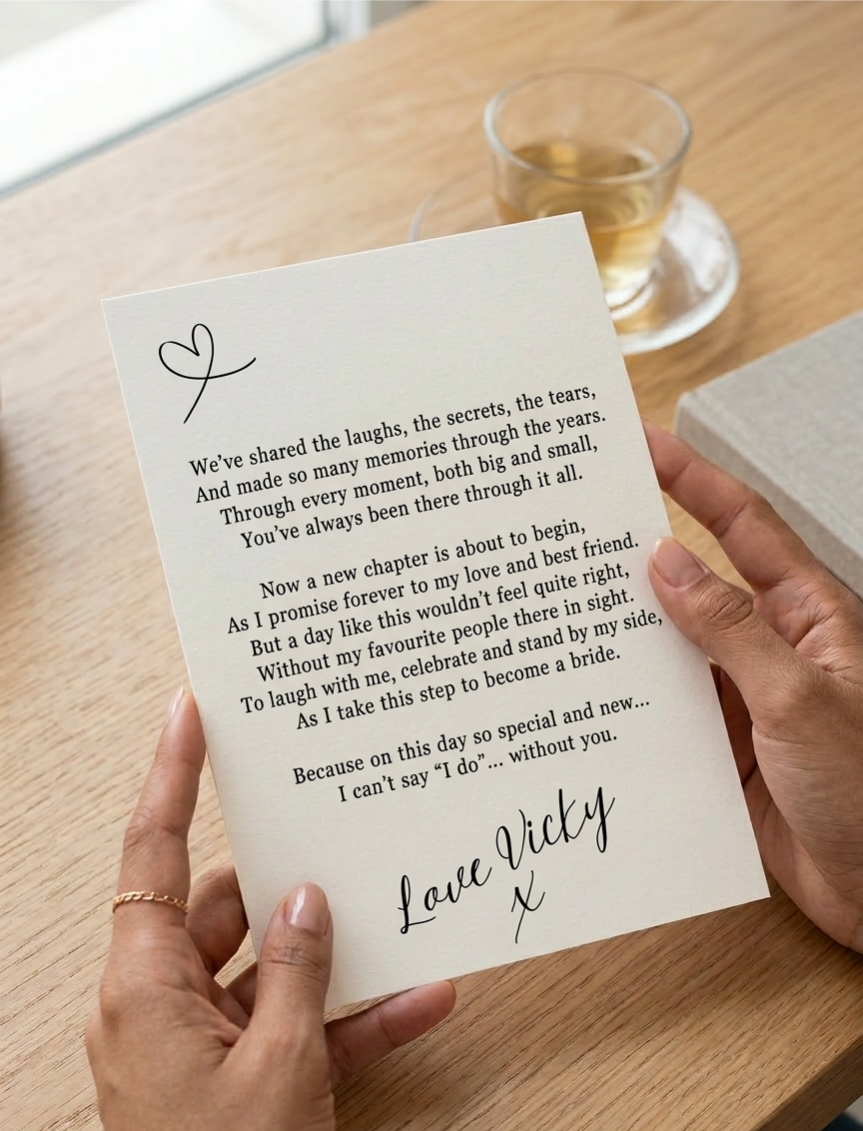 We've shared the laughs, the secrets, the tears,
And made so many memories through the years.
Through every moment, both big and small,
You've always been there through it all.
Now a new chapter is about to begin,
As I promise forever to my love and best friend.
But a day like this wouldn't feel quite right,
Without my favourite people there in sight.
To laugh with me, celebrate and stand by my side,
As I take this step to become a bride.
Because on this day so special and new...
I can't say “I do”... without you.
Love Vicky
X